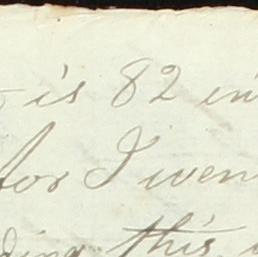 is 82 in
for I wen
this